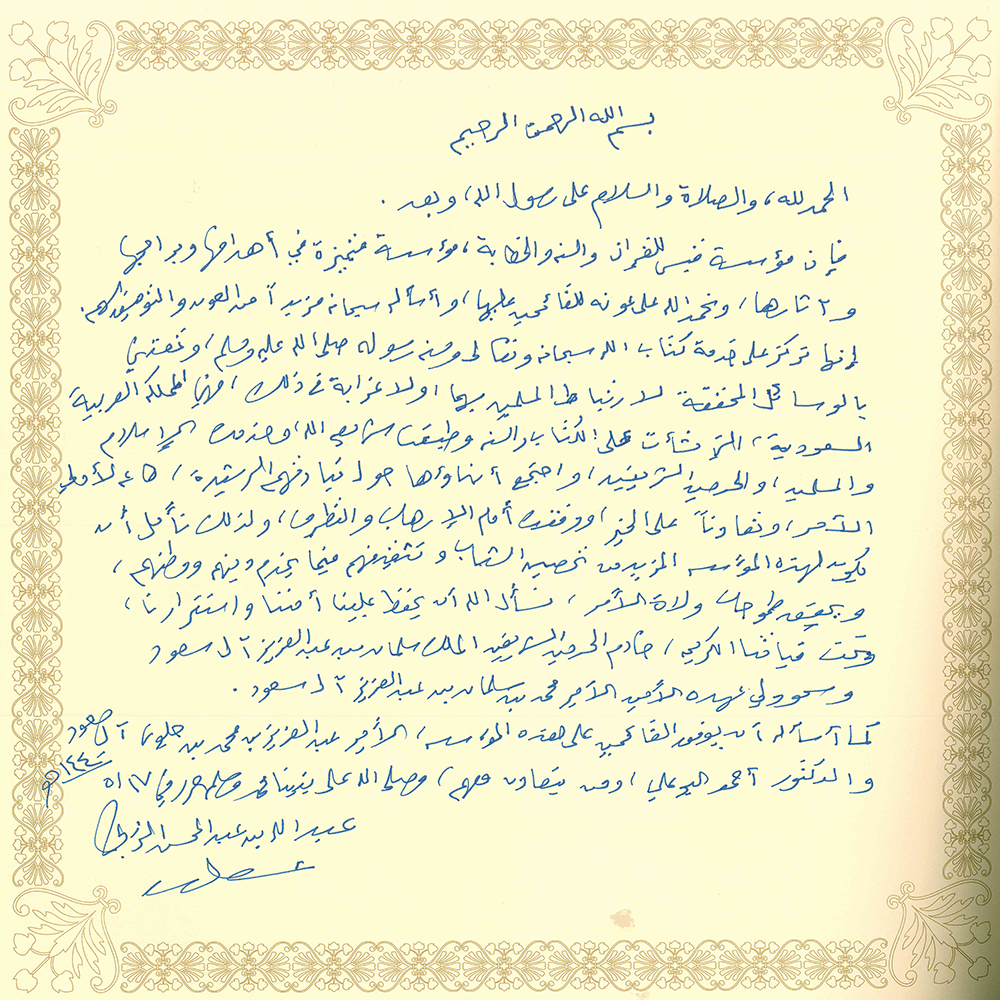 بسم الله الرحمن الرحيم
الحمد لله، والصلاة والسلام على رسول الله، وبعد.
فإن مؤسسة قبس للقرآن والسنه والخطابة، مؤسسة متميزة في أهدافها وبرامجها
وآثارها، ونحمد الله على عونه للقائمين عليها، وأسأله سبحانه مزيداً من العون والتوفيق لهم.
إنها تركز على خدمة كتاب الله سبحانه وتعالى وسنه رسوله صلى الله عليه وسلم، وتعتني
بالوسائل المحققة لارتباط المسلمين بهما، ولا غرابة في ذلك، فهي المملكة العربية
السعودية، التي نشأت على الكتاب والسنه وطبقت شريعة الله وخدمت الإسلام
والمسلمين، والحرمين الشريفين، واجتمع أبناؤها حول قيادتهم الرشيدة، طاعه لأولي
الأمر، وتعاوناً على الخير، ووقفت أمام الإرهاب والتطرف، ولذلك نأمل أن
يكون لهذه المؤسسه المزيد من تحصين الشباب وتثقيفهم فيما يخدم دينهم ووطنهم،
ويحقق طموحات ولاة الأمر، نسأل الله أن يحفظ علينا أمننا واستقرارنا،
وتحت قيادتنا الكريمه، خادم الحرمين الشريفين الملك سلمان بن عبدالعزيز آل سعود
وسمو ولي عهده الأمين الأمير محمد بن سلمان بن عبدالعزيز آل سعود.
كما أسأله أن يوفق القائمين على هذه المؤسسه، الأمير عبدالعزيز بن محمد بن جلوي آل سعود
والدكتور أحمد البوعلي، ومن يتعاون معهم، وصلى الله على نبينا محمد وسلم حرر في
عبدالله بن عبدالمحسن التركي